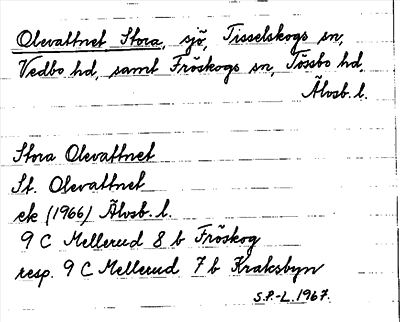 Olevattnet Stora, sjö, Tisselskogs sn,
Vedbo hd, samt Fröskogs sn, Tössbo hd,
Älvsb. l.
Stora Olevattnet
St. Olevattnet
ek (1966) Älvsb. l.
9 C Mellerud 8 b Fröskog
resp. 9 C Mellerud 7 b Kraksbyn
S.P.-L. 1967.